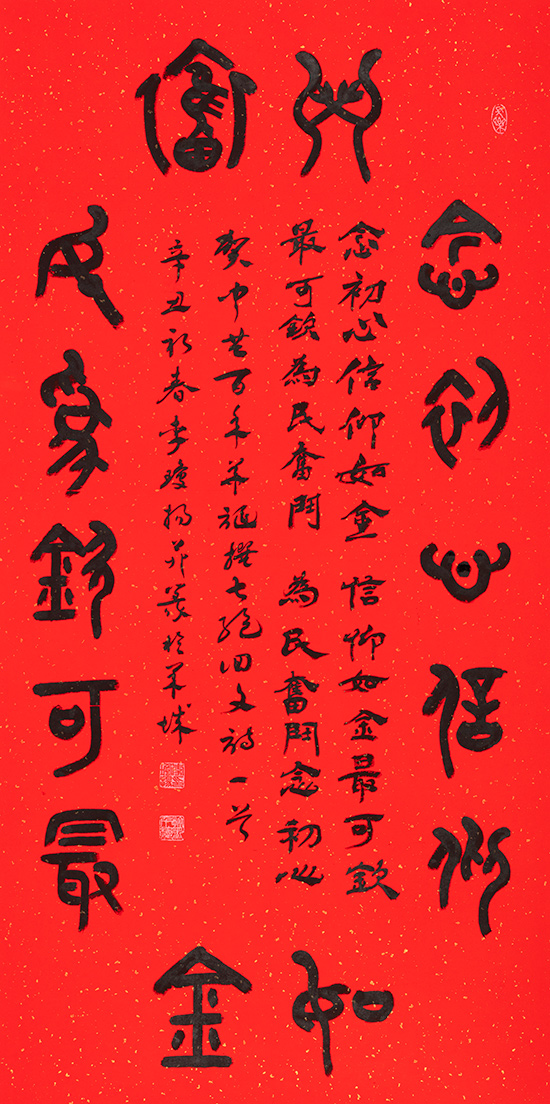 念初心信仰如金最可欽為民奮鬥
念初心信仰如金 信仰如金最可欽
最可欽為民奮鬥 為民奮鬥念初心
賀中共百年華誕撰七絕回文詩一首
辛丑初春李瓊揚并篆於羊城